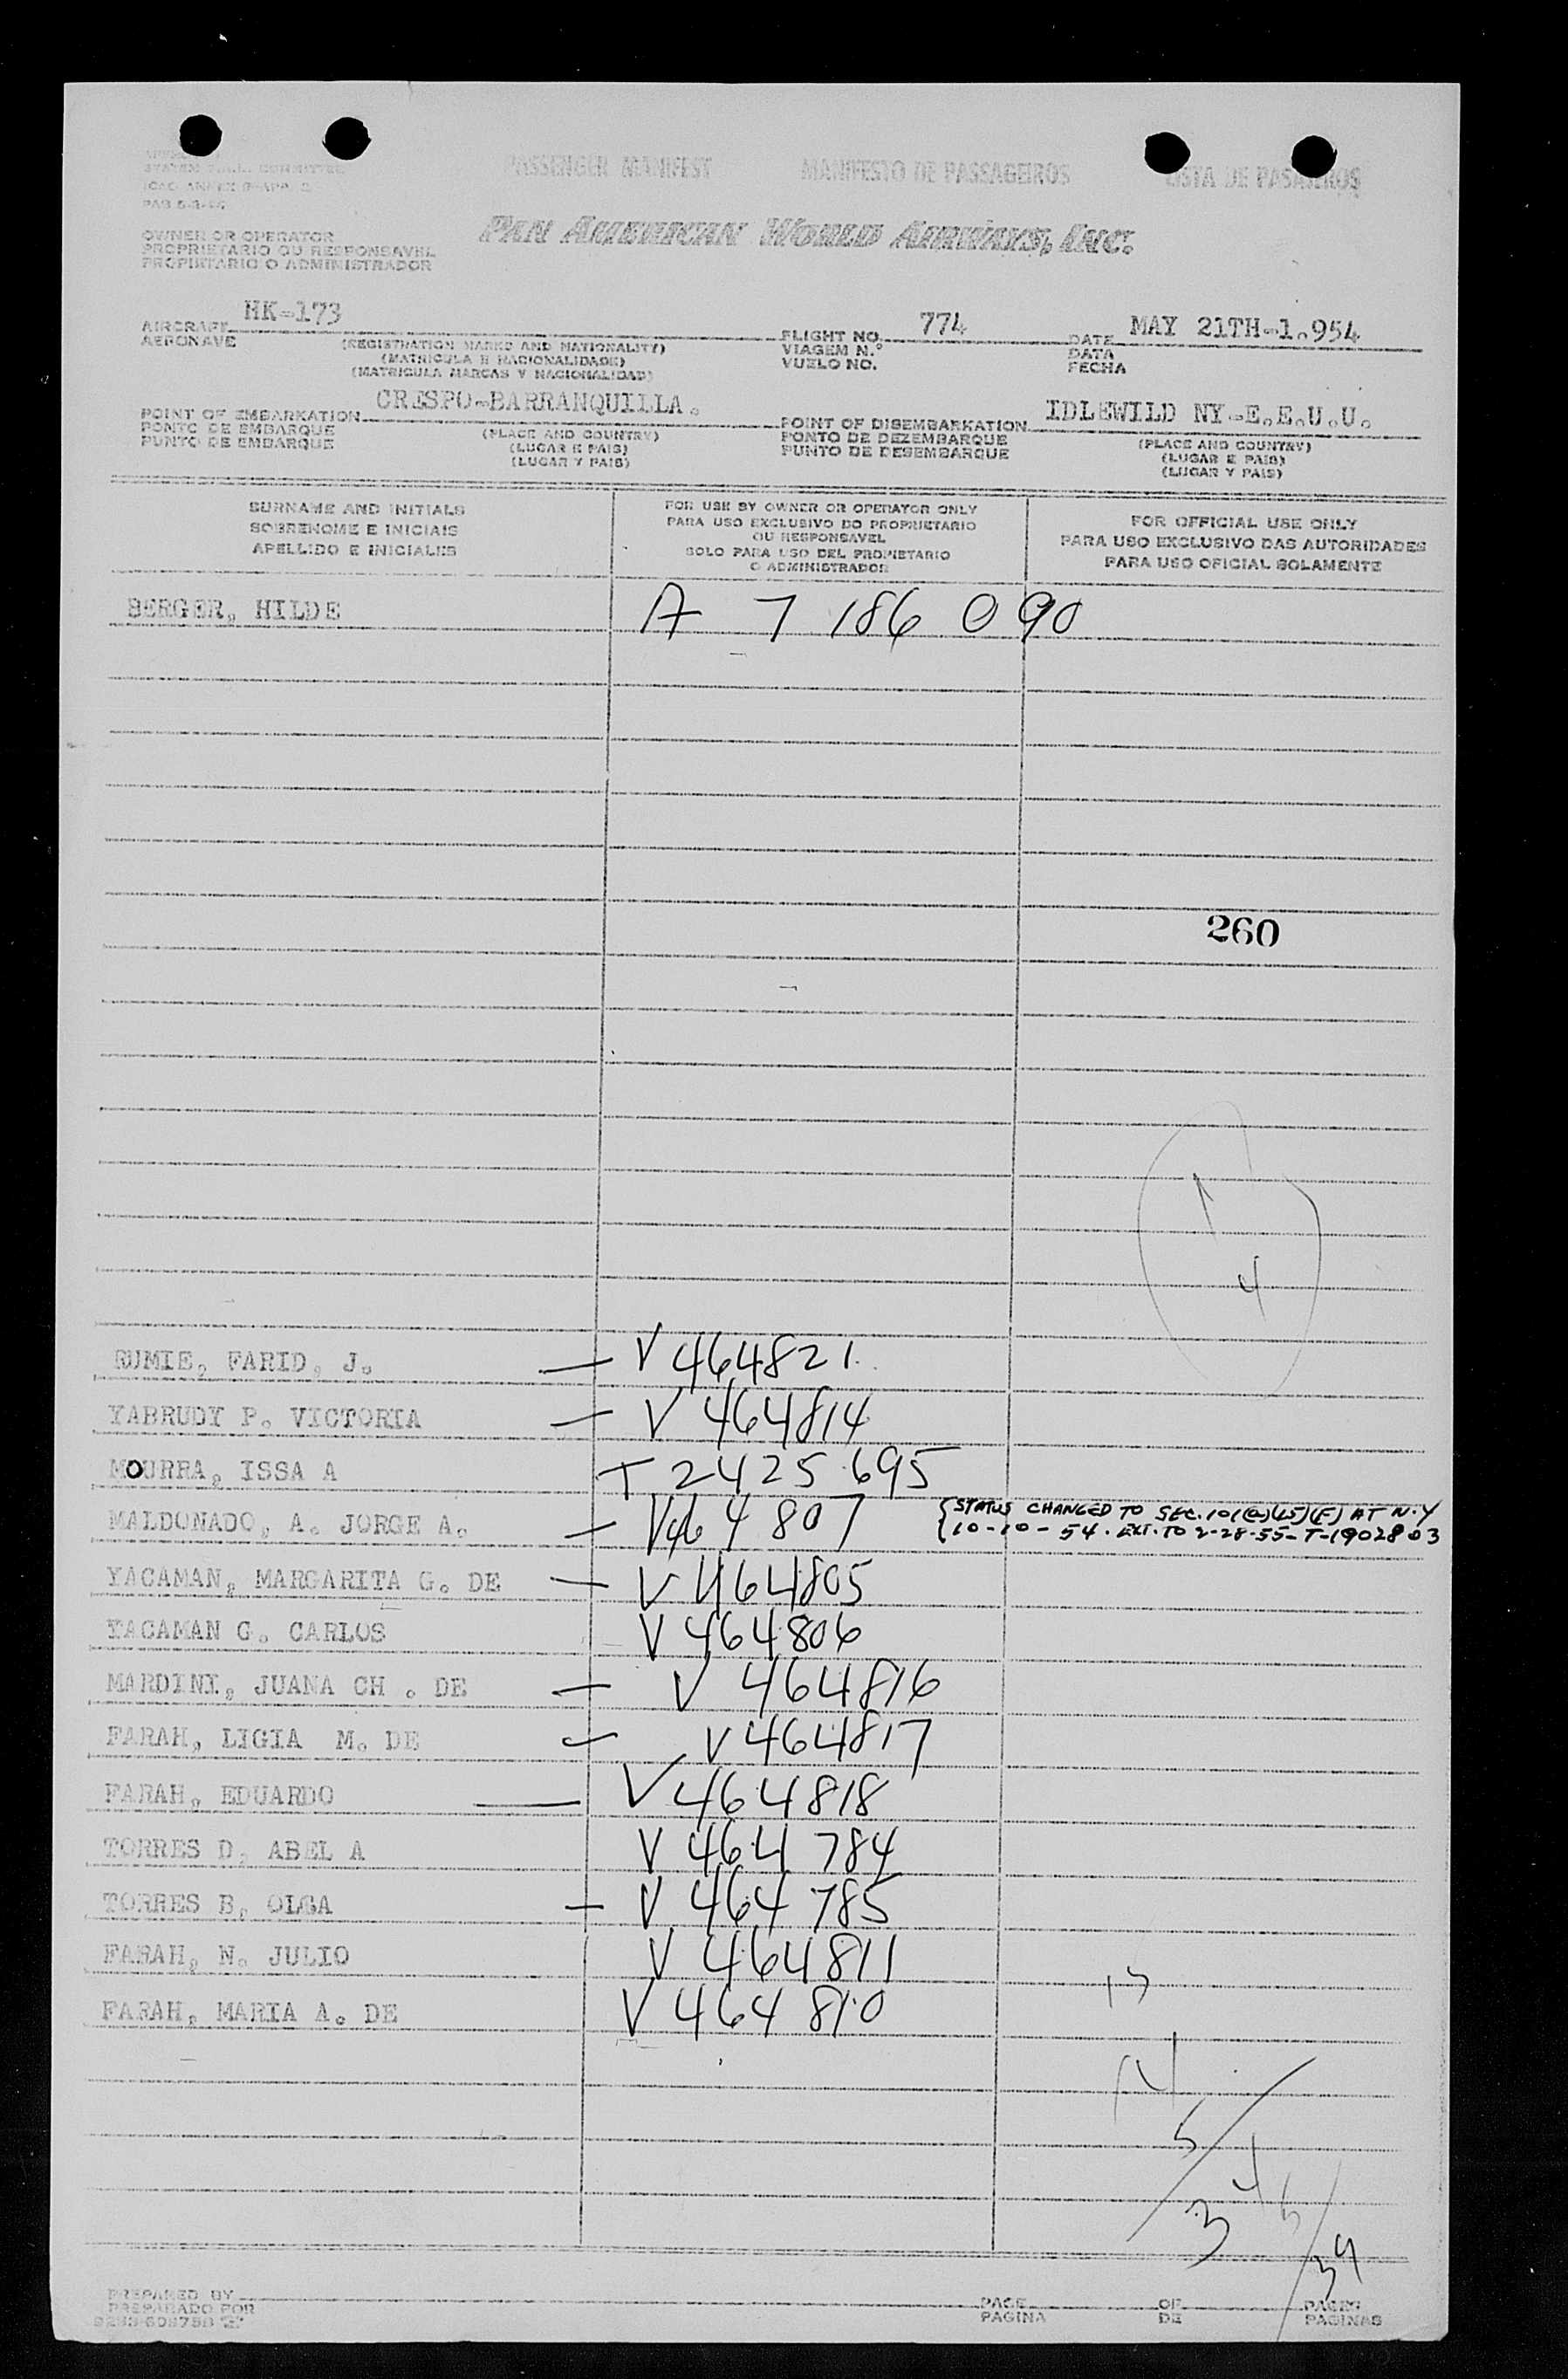 PASSENGER MANIFEST MANIFESTO DE PASSAGEIROS LISTA DE PASAJEROS
PAN AMERICAN WORLD AIRWAYS, INC.
OWNER OR OPERATOR
PROPRIETARIO OU RESPONSAVEL
PROPIETARIO O ADMINISTRADOR
AIRCRAFT HK-173 FLIGHT NO. 774 DATE MAY 21TH-1.954
AERONAVE (REGISTRATION MARKS AND NATIONALITY) VIAGEM N.º DATA
(MATRICULA E NACIONALIDADE) VUELO NO. FECHA
(MATRICULA MARCAS Y NACIONALIDAD)
POINT OF EMBARKATION CRESPO-BARRANQUILLA. POINT OF DISEMBARKATION IDLEWILD NY-E.E.U.U.
PONTO DE EMBARQUE (PLACE AND COUNTRY) PONTO DE DEZEMBARQUE (PLACE AND COUNTRY)
PUNTO DE EMBARQUE (LUGAR E PAIS) PUNTO DE DESEMBARQUE (LUGAR E PAIS)
(LUGAR Y PAIS) (LUGAR Y PAIS)
SURNAME AND INITIALS
SOBRENOME E INICIAIS
APELLIDO E INICIALES
FOR USE BY OWNER OR OPERATOR ONLY
PARA USO EXCLUSIVO DO PROPRIETARIO
OU RESPONSAVEL
SOLO PARA USO DEL PROPIETARIO
O ADMINISTRADOR
FOR OFFICIAL USE ONLY
PARA USO EXCLUSIVO DAS AUTORIDADES
PARA USO OFICIAL SOLAMENTE
BERGER, HILDE A 7 186 090
260
1
4
RUMIE, FARID, J. — V 464821
YABRUDY P. VICTORIA — V 464814
MOURRA, ISSA A T 2425695
MALDONADO, A. JORGE A. — V464807 STATUS CHANGED TO SEC. 101(a)(15)(F) AT N.Y
10-10-54. EXT. TO 2-28-55-T-1902803
YACAMAN, MARGARITA G. DE — V 464805
YACAMAN G. CARLOS V 464806
MARDINI, JUANA CH . DE — V 464816
FARAH, LIGIA M. DE — V 464817
FARAH, EDUARDO — V 464818
TORRES D, ABEL A V 464784
TORRES B, OLGA — V 464785
FARAH, N. JULIO V 464811
FARAH, MARIA A. DE V 464810
PREPARED BY PAGE OF PAGES
PREPARADO POR PAGINA DE PAGINAS